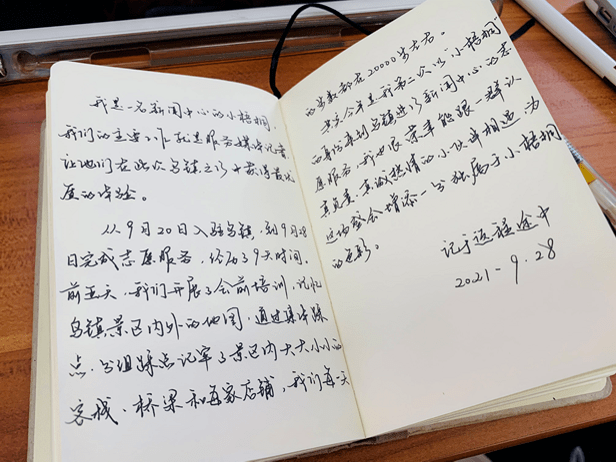 我是一名新闻中心的小梧桐，
我们的主要工作就是服务媒体记者，
让他们在此次乌镇之行中获得最优
质的体验。
从9月20日入驻乌镇，到9月28
日完成志愿服务，经历了9天时间，
前五天，我们开展了会前培训，记忆
乌镇景区内外的地图，通过集体踩
点、分组踩点记牢了景区内大大小小的
客栈、桥梁和每家店铺，我们每天
的步数都有20000步左右。
其实今年是我第二次以“小梧桐”
的身份来到乌镇进行新闻中心的志
愿服务，我也很荣幸能跟一群认
真负责、真诚热情的小伙伴相遇，为
这场盛会增添一分独属于小梧桐
的色彩。
记于返程途中
2021-9.28